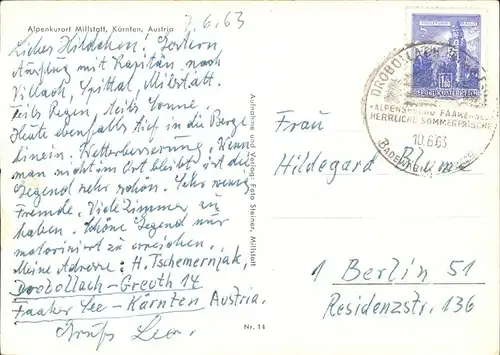 Alpenkurort Millstatt, Kärnten, Austria
9.6.63
Liebes Hildchen! Gestern
Ausflug mit Kapitän nach
Villach, Spittal, Milstatt.
Teils Regen, teils Sonne.
Heute ebenfalls tief in die Berge
hinein. Wetterbesserung. Wenn
man nicht im Ort bleibt ist die
Gegend sehr schön. Sehr wenig
Fremde. Viele Zimmer zu
haben. Schöne Gegend nur
motorisiert zu erreichen.
Meine Adresse: H. Tschemernjak,
Drobollach-Greuth 14
Faaker See-Kärnten Austria.
Gruß Leo.
Aufnahme und Verlag: Foto Steiner, Millstatt
Nr. 14
DROBOLLACH
ALPENSTRAND FAAKERSEE
HERRLICHE SOMMERFRISCHE
10.6.63
Frau
Hildegard
1 Berlin 51
Residenzstr. 136